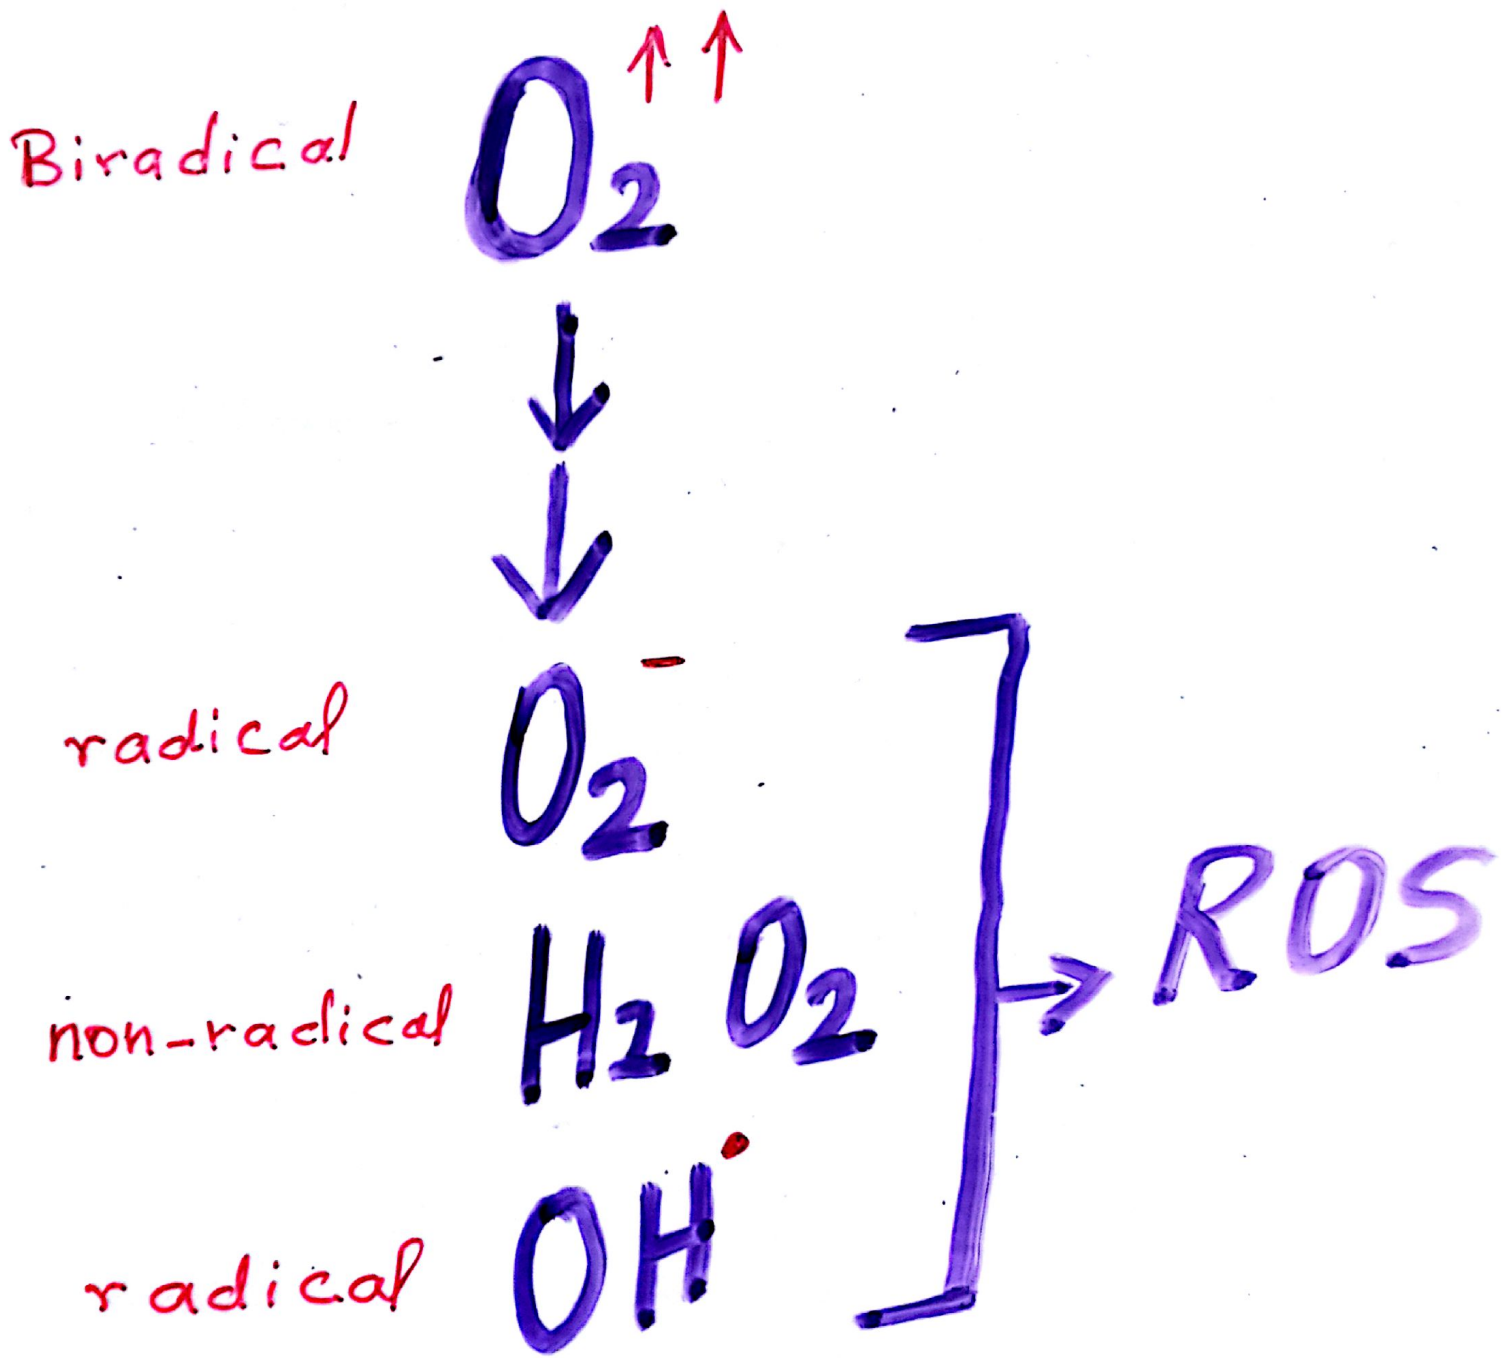 Biradical O₂↑↑
radical O₂⁻
non-radical H₂O₂
ROS
radical OH•